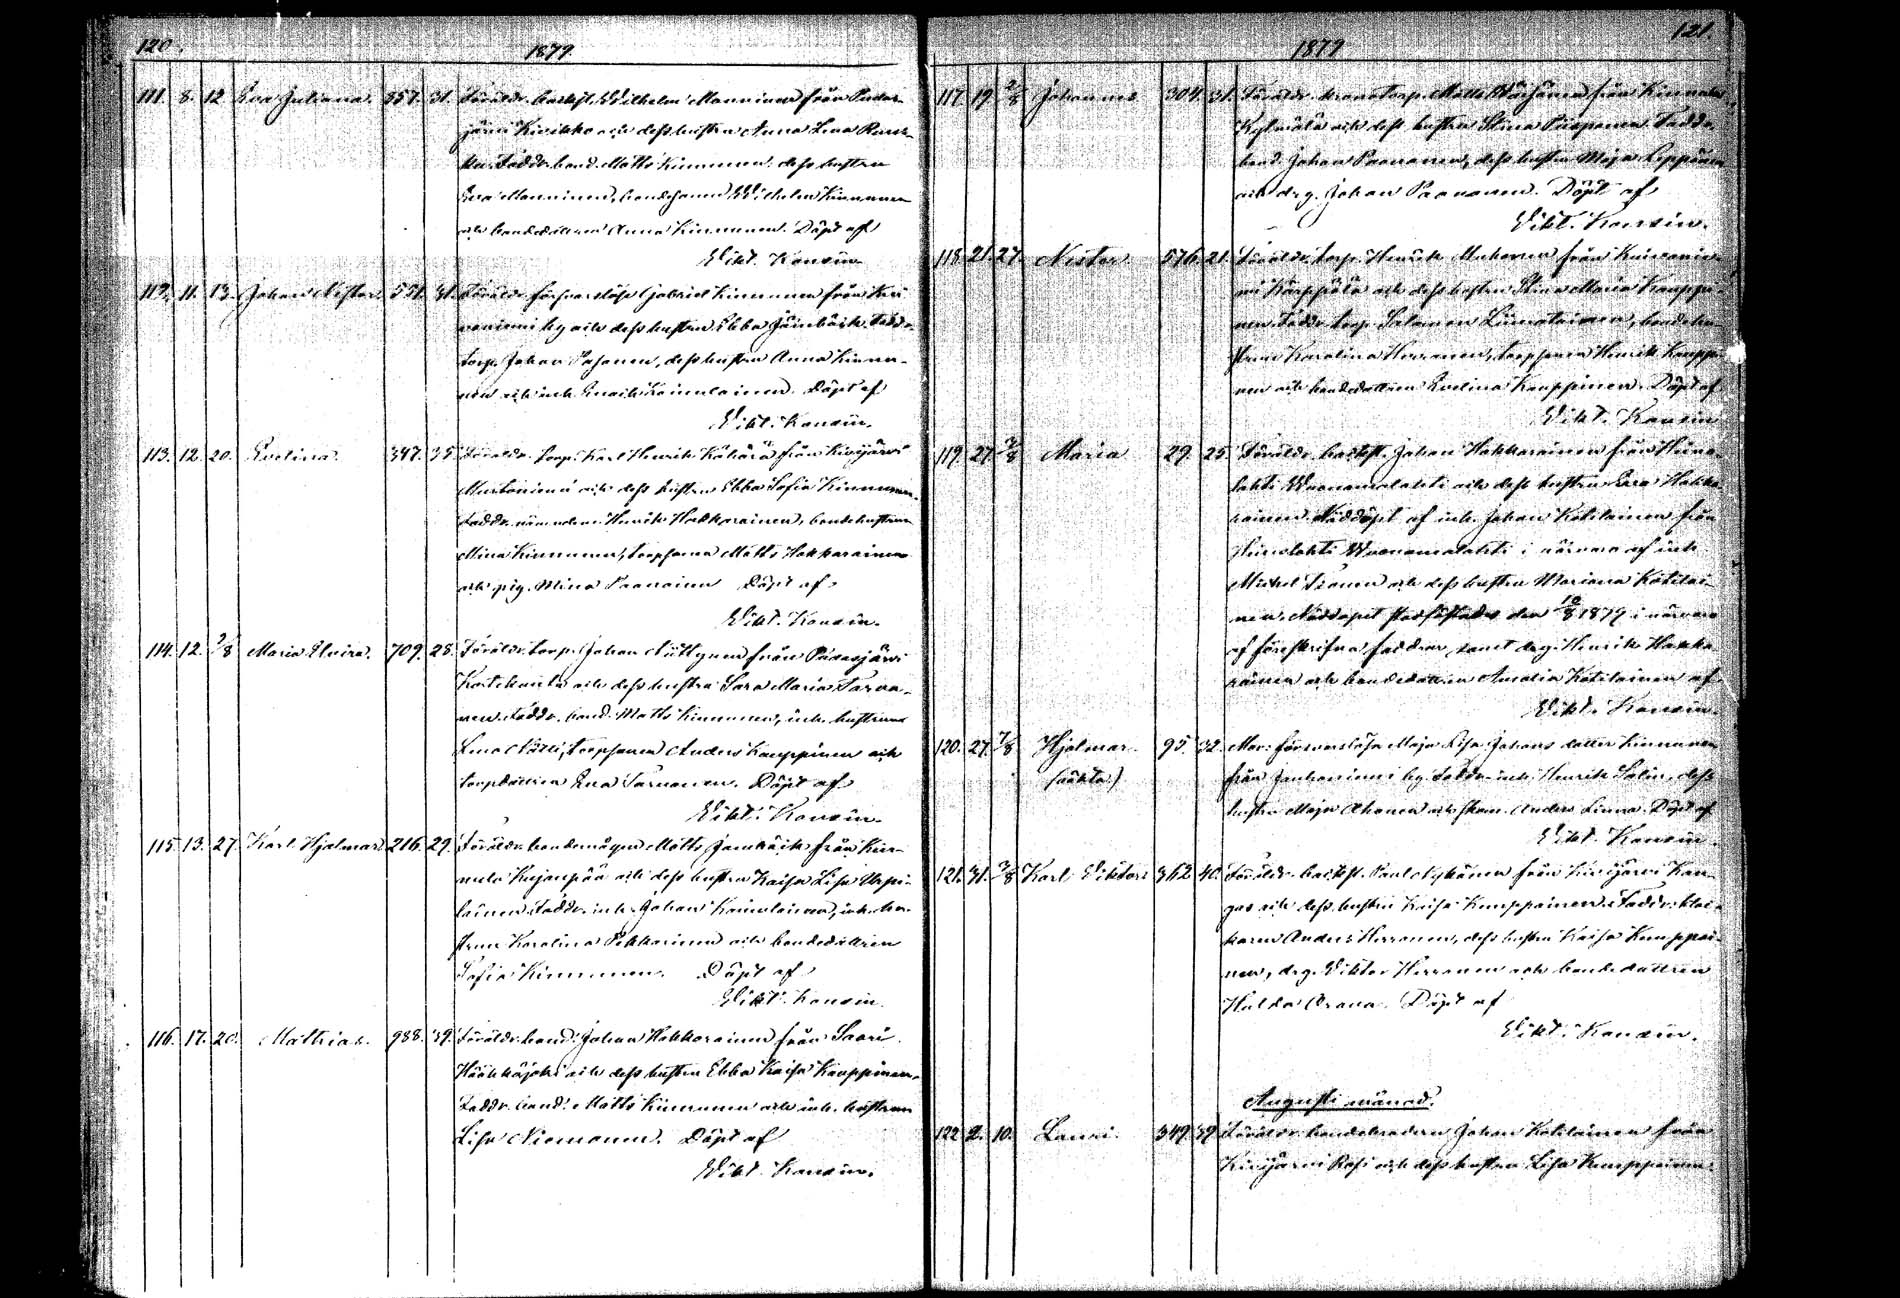 120.
1879.
111. 8. 12 Eva Juliana. 357. 31. Föräldr. backst. Wilhelm Manninen från Pudas-
järvi Kivikko och dess hustru Anna Lena
Faddr. bond. Matts Kinnunen, dess hustru
Eva Manninen, bondesonen Wilhelm Kinnunen
och bondedottren Anna Kinnunen. Döpt af
Vikt. Konsin.
112. 11. 13. Johan Nestor. 551. 31. Föräldr. försvarslöse Gabriel Kinnunen från
by och dess hustru Ebba Faddr.
torp. Johan dess hustru Anna Kinnu-
nen och inh. Döpt af
Vikt. Konsin.
113. 12. 20. Evelina. 347. 35. Föräldr. torp. Karl Henrik från Kivijärvi
och dess hustru Ebba Sofia Kinnunen.
Faddr. Henrik Hakkarainen, bondehustrun
Mina Kinnunen, torpsonen Matts Hakkarainen
och pig. Mina Paanainen Döpt af
Vikt. Konsin.
114. 12. 3/8 Maria Elvira. 709. 28. Föräldr. torp. Johan från
och dess hustru Sara Maria Tarva-
nen. Faddr. bond. Matts Kinnunen, inh. hustrun
Lena torpsonen Anders Kauppinen och
torpdottren Eva Döpt af
Vikt. Konsin.
115. 13. 27. Karl Hjalmar 216. 29. Föräldr. bondemågen Matts från Kin-
nula och dess hustru Kaisa Lisa Urpi-
lainen. Faddr. inh. Johan Kainulainen, inh. hu-
strun Karolina Pekkarinen och bondedottren
Sofia Kinnunen. Döpt af
Vikt. Konsin.
116. 17. 20. Mathias. 988. 39. Föräldr. bond. Johan Hakkarainen från Saari
och dess hustru Ebba Kaisa Kauppinen.
Faddr. bond. Matts Kinnunen och inh. hustrun
Lisa Niemonen. Döpt af
Vikt. Konsin.
121.
1879
117. 19. 2/8 Johannes 304. 31. Föräldr. kronotorp. Matts från Kinnula
och dess hustru Stina Piispanen. Faddr.
bond. Johan Paananen, dess hustru Maja Leppänen
och drg. Johan Paananen. Döpt af
Vikt. Konsin.
118. 21. 27. Nestor 576. 21. Föräldr. torp. Henrik Muhonen från
Kärppälä och dess hustru Stina Maria Kauppi-
nen. Faddr. torp. Salomon Liimatainen, bondehu-
strun Karolina Herranen, torpsonen Henrik Kauppi-
nen och bondedottren Evelina Kauppinen. Döpt af
Vikt. Konsin
119. 27. 3/8 Maria 29. 25. Föräldr. backst. Johan Hakkarainen från Heina-
lahti Wuonamolahti och dess hustru Hakka-
rainen. Nöddöpt af inh. Johan Kotilainen från
Wuonamolahti i närvaro af inh.
Michel och dess hustru Mariana Kotilai-
nen. Nöddopet stadfästades den 10/8 1879 i närvaro
af föreskrifna faddrar, samt drg. Henrik Hakka-
rainen och bondedottren Amalia Kotilainen af
Vikt. Konsin.
120. 27. 7/8 Hjalmar. 95. 32. Mor: försvarslösa Maja Lisa Johans dotter Kinnunen
(oäkta.) från Jauhoniemi by. Faddr. inh. Henrik Salin, dess
hustru Maja Ahonen och Anders Linna. Döpt af
Vikt. Konsin.
121. 31. 3/8 Karl Viktor 362 40. Föräldr. backst. Paul från Kivijärvi Kan-
gas och dess hustru Kaisa Kumppainen. Faddr. kloc-
karen Anders Herranen, dess hustru Kaisa Kumppai-
nen, drg. Viktor Herranen och bondedottren
Hulda Orava. Döpt af
Vikt. Konsin.
Augusti månad.
122. 2. 10. Lauri. 349. 39. Föräldr. bondebrodern Johan Kotilainen från
Kivijärvi Rasi och dess hustru Lisa Kumppainen.